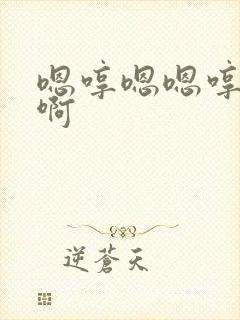 嗯哼嗯嗯哼
啊
逆蒼天